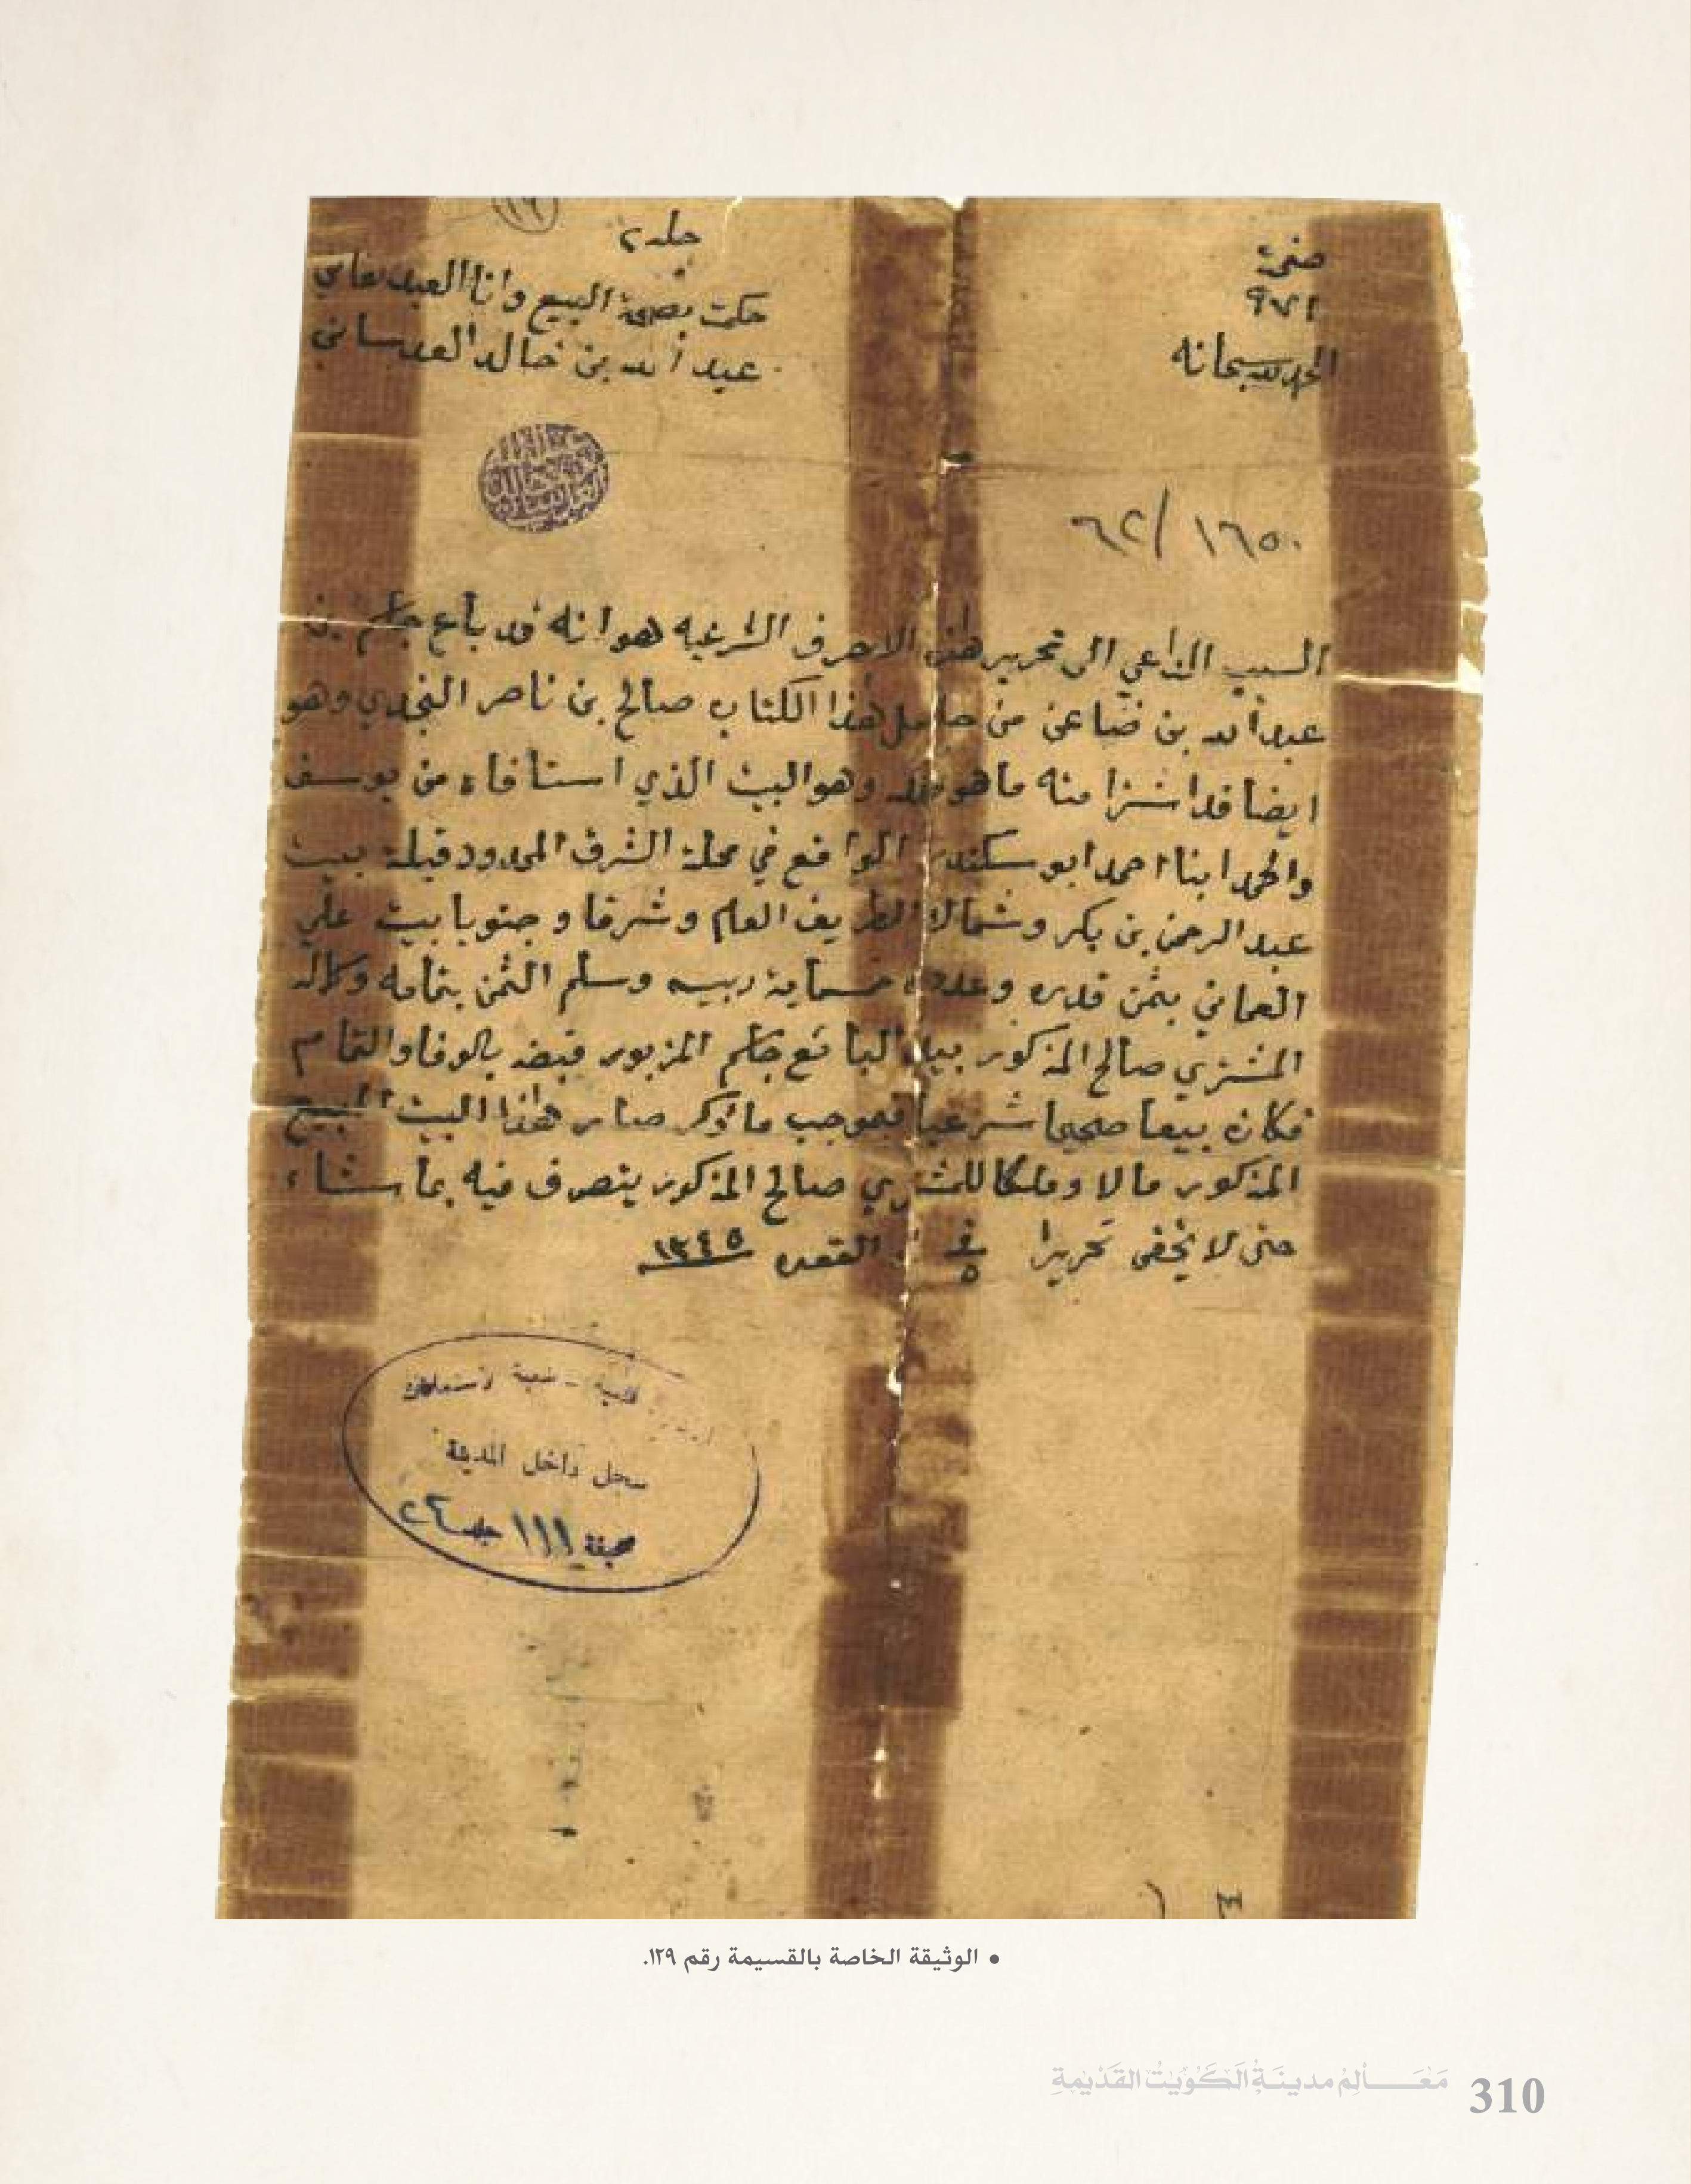 جلد ٢
صفحة
٩٧١
حكمت بصحة البيع وانا العبد
عبد الله بن خالد العدساني
الحمد لله سبحانه
١٦٥٠/٦٢
السبب الداعي الى تحرير هذه الاحرف الشرعيه هو انه قد باع جاسم بن
عبد الله بن ضاعن من حامل هذا الكتاب صالح بن ناصر النجدي وهو
ايضا قد اشترا منه ما هو وهو البيت الذي استافاه من يوسف
احمد ابو سكندر الواقع في محلة الشرق المحدود قبلة ببيت
عبد الرحمن بن بكر وشمالا الطريق العام وشرقا و جنوبا بيت علي
العماني بثمن قدره وعدده خمسماية ربيه وسلم الثمن بتمامه وكماله
المشتري صالح المذكور بيد البائع جاسم المزبور قبضه بالوفا والتمام
فكان بيعا صحيحا شرعيا فبموجب ما ذكر صار هذا البيت المبيع
المذكور مالا وملكا للمشتري صالح المذكور يتصرف فيه بما شاء
حتى لا يخفى تحريرا في ٥ القعده ١٣٤٥
سجل داخل المدينة
صحيفة ١١١ جلد ٢٤
• الوثيقة الخاصة بالقسيمة رقم ١٢٩.
مَعَالِمُ مدينَةُ الكُوَيْتُ القَدْيْمَةِ 310